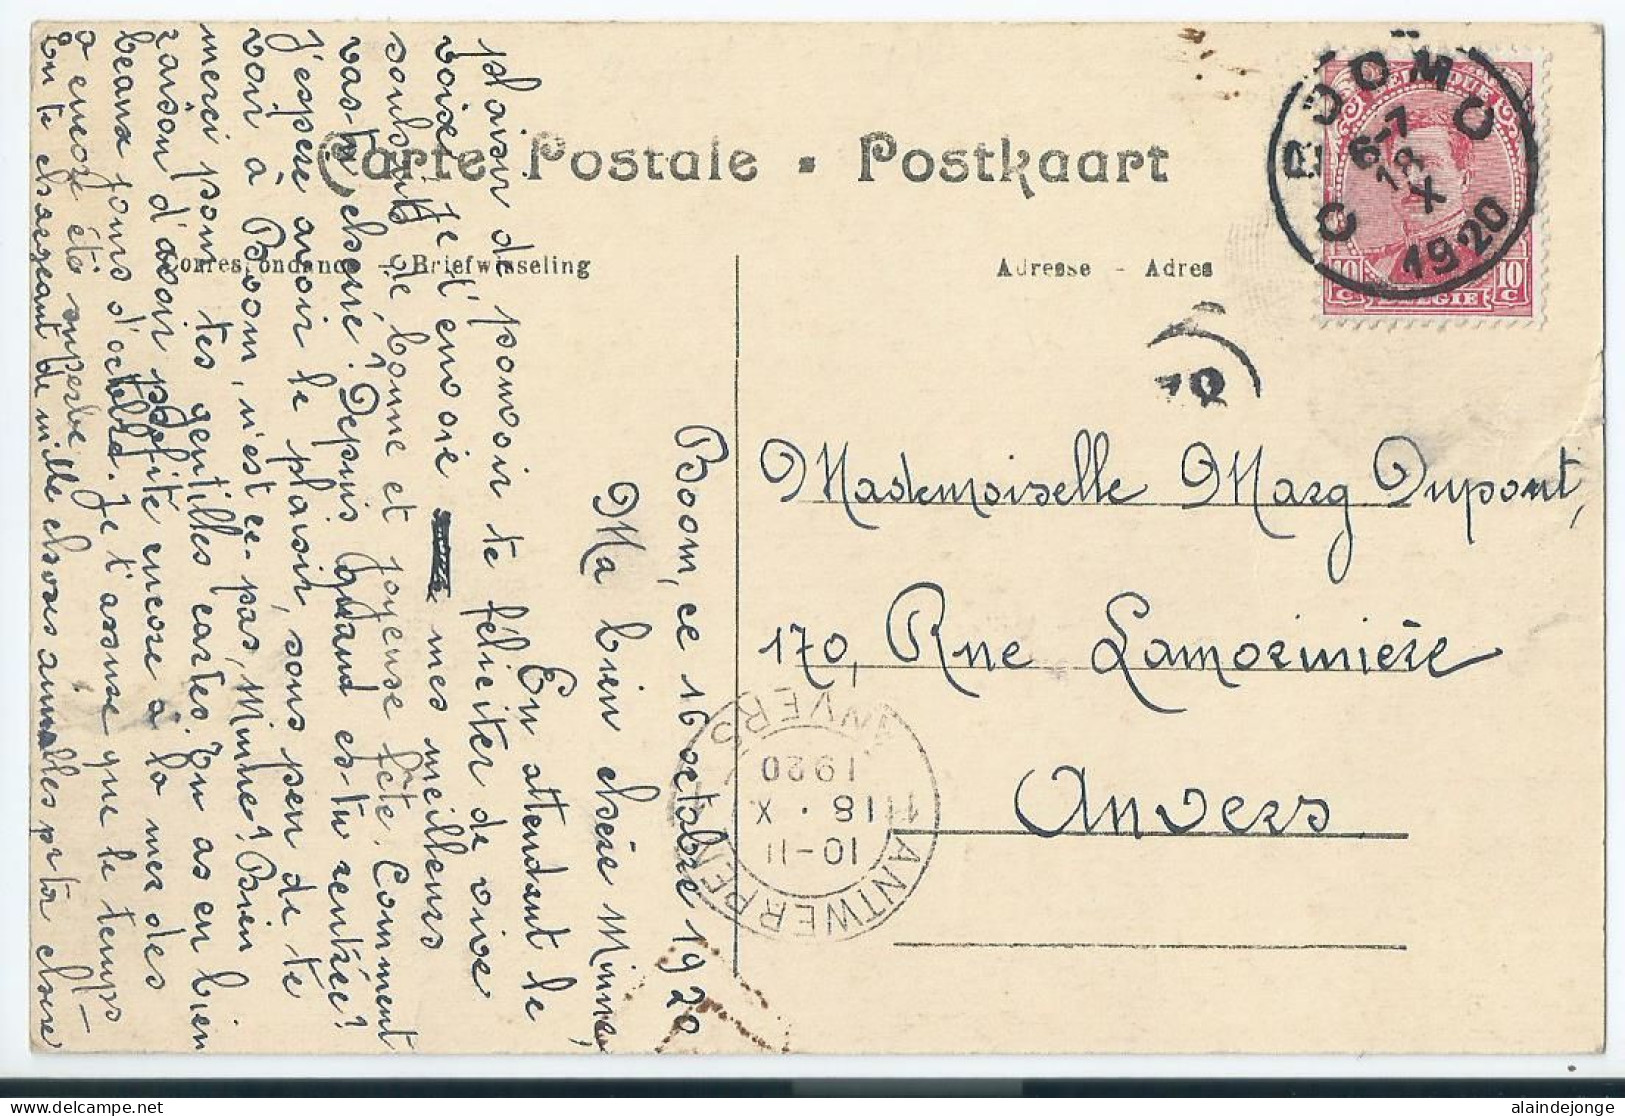 Carte Postale - Postkaart
Correspondance - Briefwisseling
Adresse - Adres
Boom, ce 16 octobre 1920
Ma bien chère Minne,
En attendant le
plaisir de pouvoir te féliciter de vive
voix je t'envoie mes meilleurs
souhaits de bonne et joyeuse fête. Comment
vas-tu chérie? Depuis quand es-tu rentrée?
J'espère avoir le plaisir, sous peu de te
voir à Boom, n'est ce-pas, Minne? Bien
merci pour tes gentilles cartes. Tu as eu bien
raison d'avoir profité encore à la mer des
beaux jours d'octobre. Je t'assure que le temps
a encore été superbe
En te chargeant de mille choses aimables pr ta chère
Mademoiselle Marg Dupont,
170, Rue Lamorinière
Anvers
BELGIQUE
10 C BELGIE 10 C
6-7
18
X
1920
ANTWERPEN
10-11
18 · X
1920
ANVERS
alaindejonge